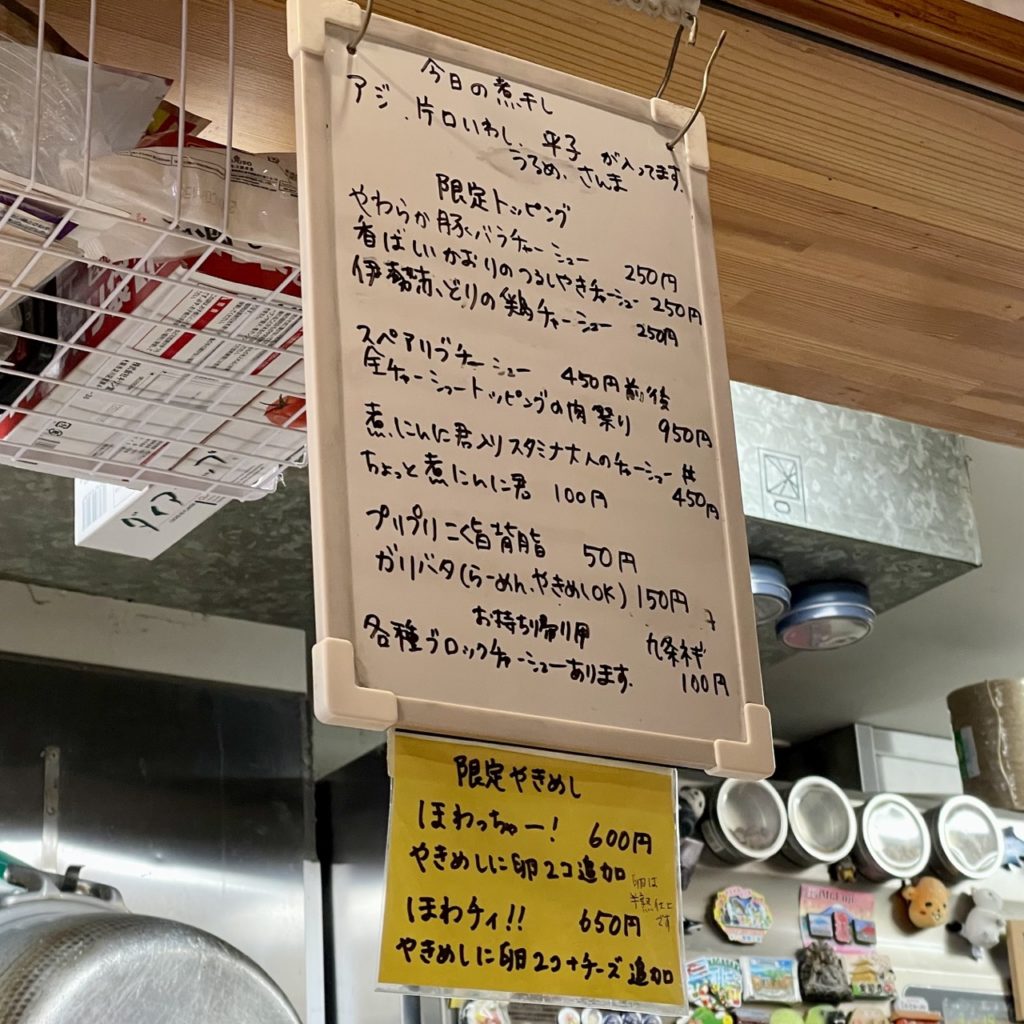 今日の煮干し
アジ、片口いわし、平子が入ってます。
うるめ、さんま
限定トッピング
やわらか豚バラチャーシュー 250円
香ばしいかおりのつるしやきチャーシュー 250円
伊勢赤どりの鶏チャーシュー 250円
スペアリブチャーシュー 450円前後
全チャーシュートッピングの肉祭り 950円
煮にんに君入りスタミナ大人のチャーシュー丼 450円
ちょっと煮にんに君 100円
プリプリこく旨背脂 50円
ガリバタ(らーめん、やきめしOK) 150円
お持ち帰り用
各種ブロックチャーシューあります。
九条ネギ
100円
限定やきめし
ほわっちゃー! 600円
やきめしに卵2コ追加
卵は
半熟仕上
です
ほわチィ!! 650円
やきめしに卵2コ+チーズ追加